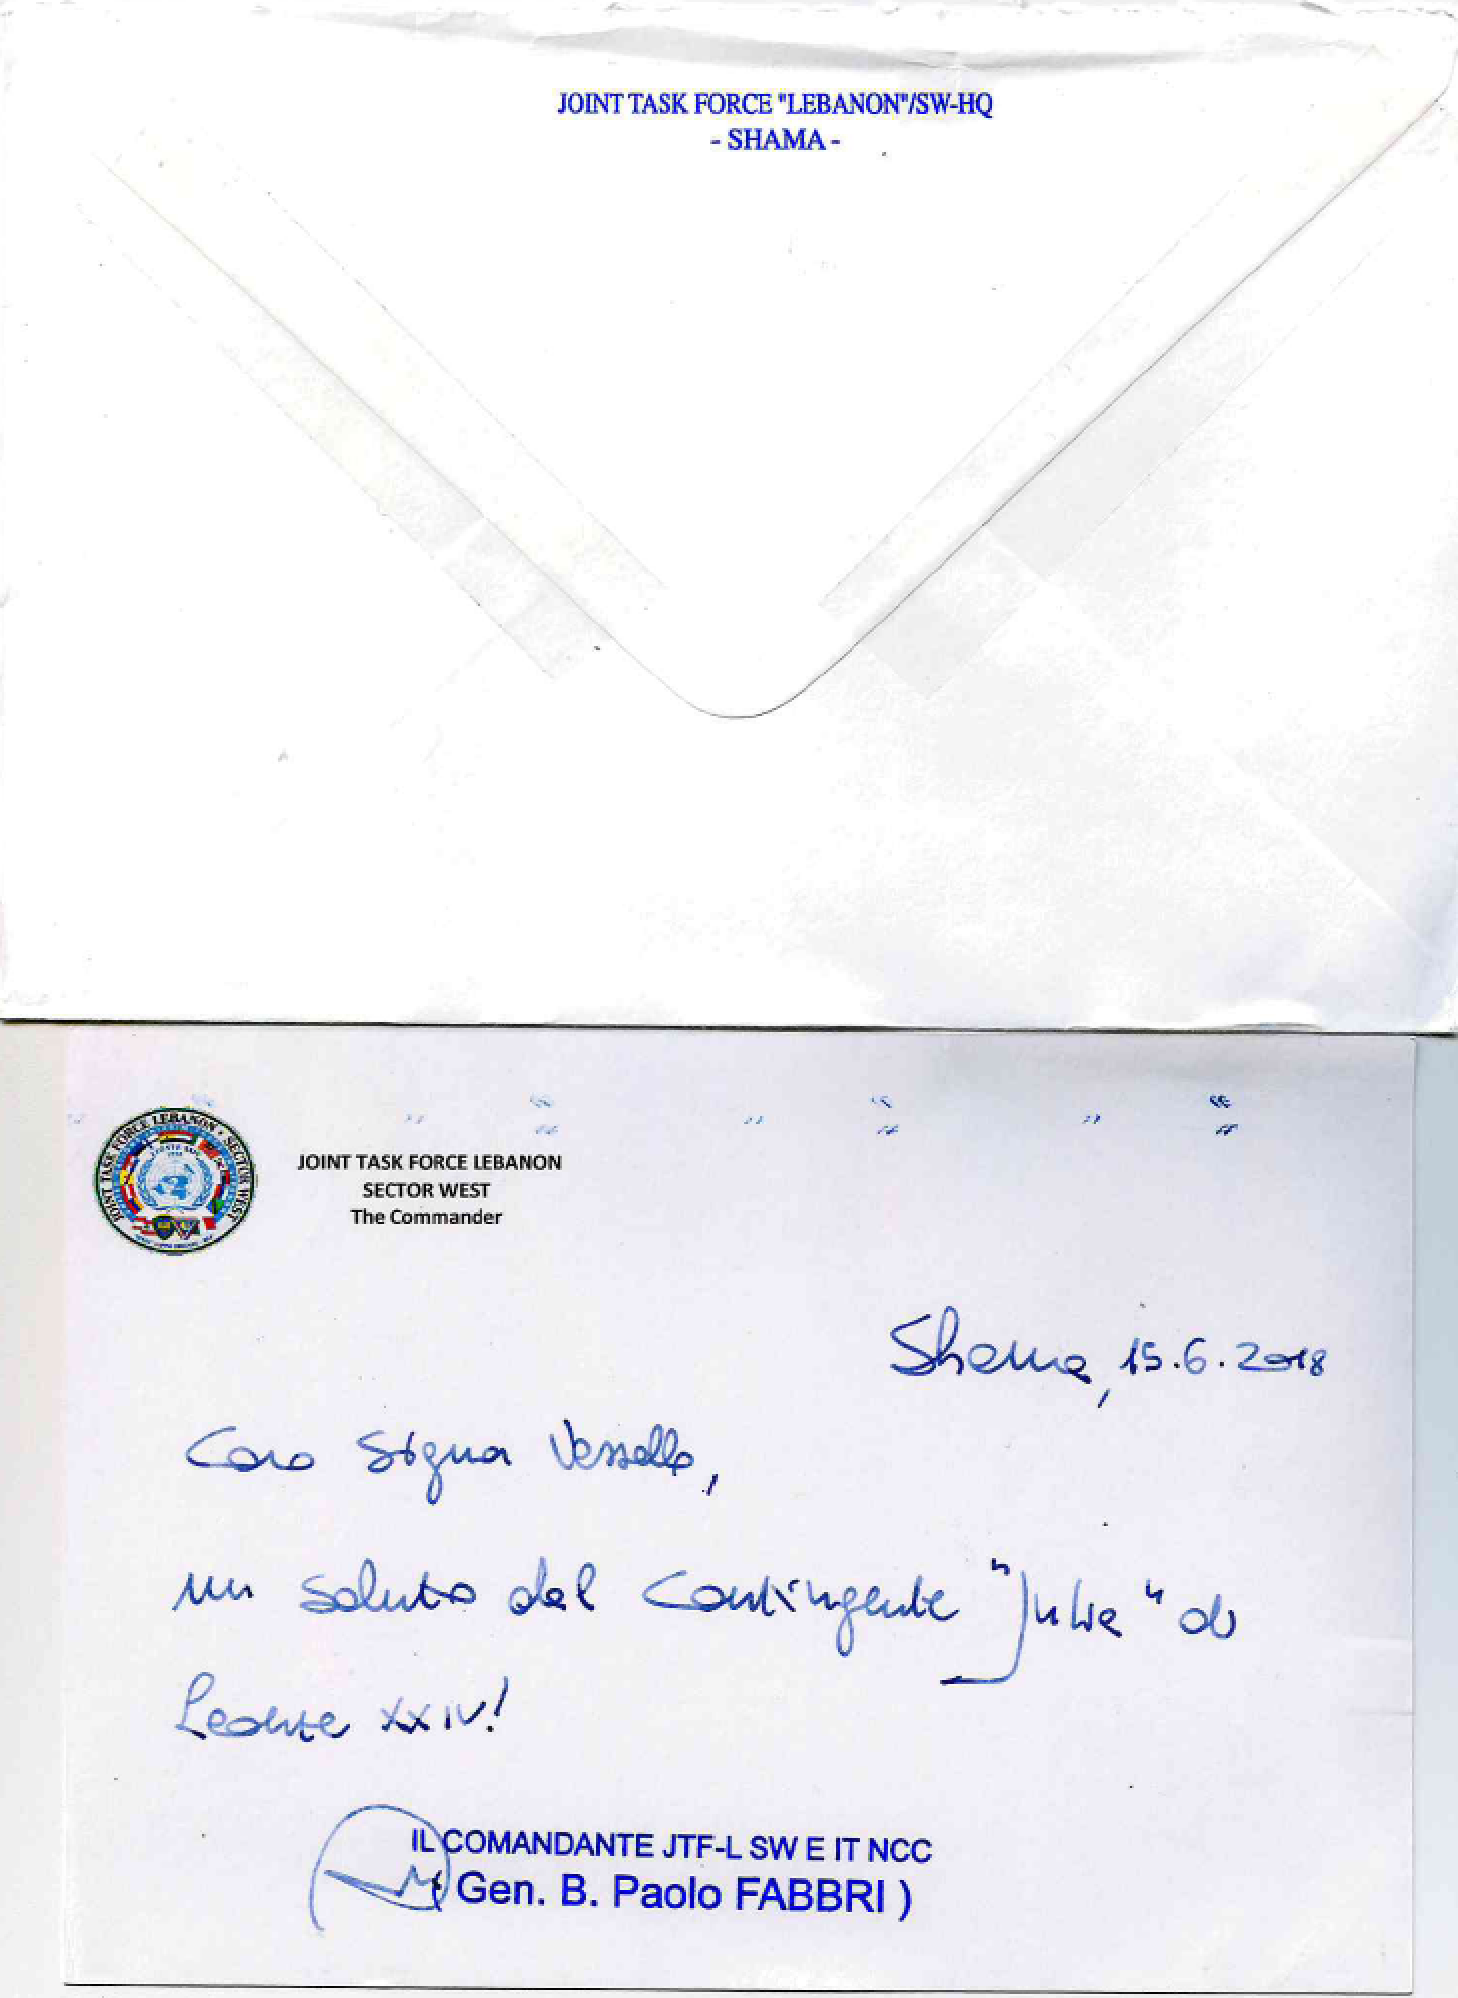 JOINT TASK FORCE "LEBANON"/SW-HQ
- SHAMA -
JOINT TASK FORCE LEBANON · SECTOR WEST
JOINT TASK FORCE LEBANON
SECTOR WEST
The Commander
Shama, 15.6.2018
Caro Signor
un saluto dal Contingente "Julia" di
Leonte XXIV!
IL COMANDANTE JTF-L SW E IT NCC
( Gen. B. Paolo FABBRI )